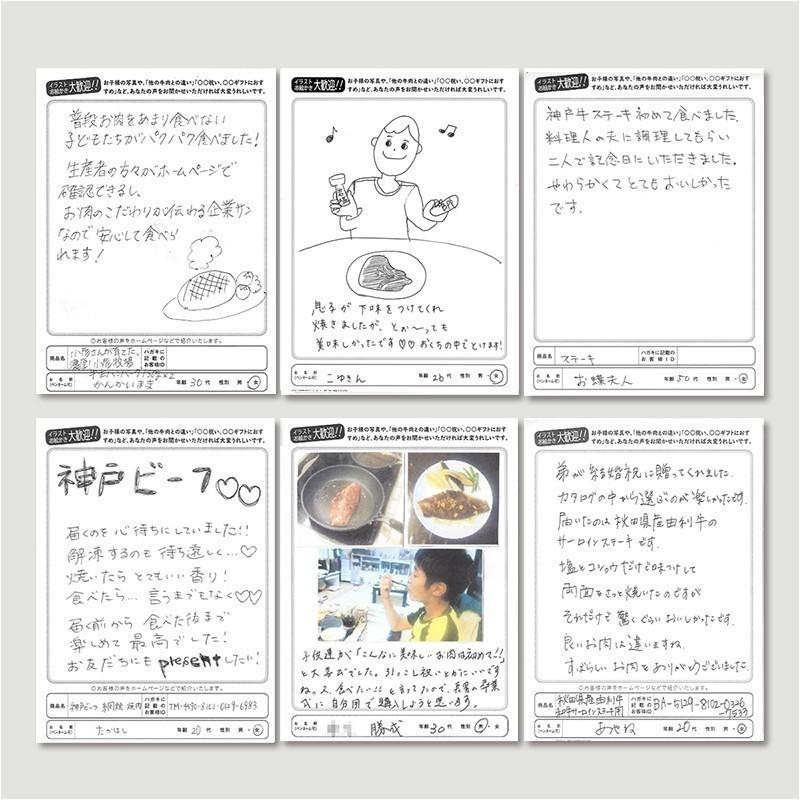 イラスト
お絵かき 大歓迎!!
お子様の写真や、「他の牛肉との違い」「〇〇祝い、〇〇ギフトにおす
すめ」など、あなたの声をお聞かせいただければ大変うれしいです。
普段お肉をあまり食べない
子どもたちがパクパク食べました!
生産者の方々がホームページで
確認できるし、
お肉のこだわりが伝わる企業サン
なので安心して食べら
れます!
◎お客様の声をホームページなどで紹介いたします。
商品名
小形さんが育てた、
ハガキに
記載の
お客様ID
かんかいまき
年齢 30代 性別 男・女
イラスト
お絵かき 大歓迎!!
お子様の写真や、「他の牛肉との違い」「〇〇祝い、〇〇ギフトにおす
すめ」など、あなたの声をお聞かせいただければ大変うれしいです。
息子が下味をつけてくれ
焼きましたが、とぉ〜っても
美味しかったです♡♡ おくちの中でとけます!
お名前
(ペンネーム可)
こゆきん
年齢 26代 性別 男・女
イラスト
お絵かき 大歓迎!!
お子様の写真や、「他の牛肉との違い」「〇〇祝い、〇〇ギフトにおす
すめ」など、あなたの声をお聞かせいただければ大変うれしいです。
神戸牛ステーキ初めて食べました。
料理人の夫に調理してもらい
二人で記念日にいただきました。
やわらかくてとてもおいしかった
です。
商品名 ステーキ
ハガキに
記載の
お客様ID
お名前
(ペンネーム可)
お蝶夫人
年齢 50代 性別 男・女
イラスト
お絵かき 大歓迎!!
お子様の写真や、「他の牛肉との違い」「〇〇祝い、〇〇ギフトにおす
すめ」など、あなたの声をお聞かせいただければ大変うれしいです。
神戸ビーフ♡♡
届くのを心待ちにしていました!!
解凍するのも待ち遠しく…♡
焼いたらとてもいい香り!
食べたら…言うまでもなく♡♡
届く前から食べた後まで
楽しめて最高でした!
お友だちにもpresentしたい!
◎お客様の声をホームページなどで紹介いたします。
商品名 神戸ビーフ 網焼 焼肉
ハガキに
記載の
お客様ID
お名前
(ペンネーム可)
たかはし
年齢 20代 性別 男・女
イラスト
お絵かき 大歓迎!!
お子様の写真や、「他の牛肉との違い」「〇〇祝い、〇〇ギフトにおす
すめ」など、あなたの声をお聞かせいただければ大変うれしいです。
子供達が「こんなに美味しいお肉は初めて!!」
と大喜びでした。引っこし祝いとかにいいです
ねっ又、食べたい!!と言ってたので、長男の卒業
式に自分用で購入しようと思います。
お名前
(ペンネーム可)
勝成
年齢 30代 性別 男・女
イラスト
お絵かき 大歓迎!!
お子様の写真や、「他の牛肉との違い」「〇〇祝い、〇〇ギフトにおす
すめ」など、あなたの声をお聞かせいただければ大変うれしいです。
弟が結婚祝に贈ってくれました。
カタログの中から選ぶのが楽しかったです。
届いたのは秋田県産由利牛の
サーロインステーキです。
塩とコショウだけで味つけして
両面をさっと焼いたのですが
それだけで驚くぐらいおいしかったです。
良いお肉は違いますね。
すばらしいお肉をありがとうございました。
◎お客様の声をホームページなどで紹介いたします。
商品名
秋田県産由利牛
和牛サーロインステーキ用
ハガキに
記載の
お客様ID
BA-5129-8102-0326
-7533
お名前
(ペンネーム可)
年齢 20代 性別 男・女